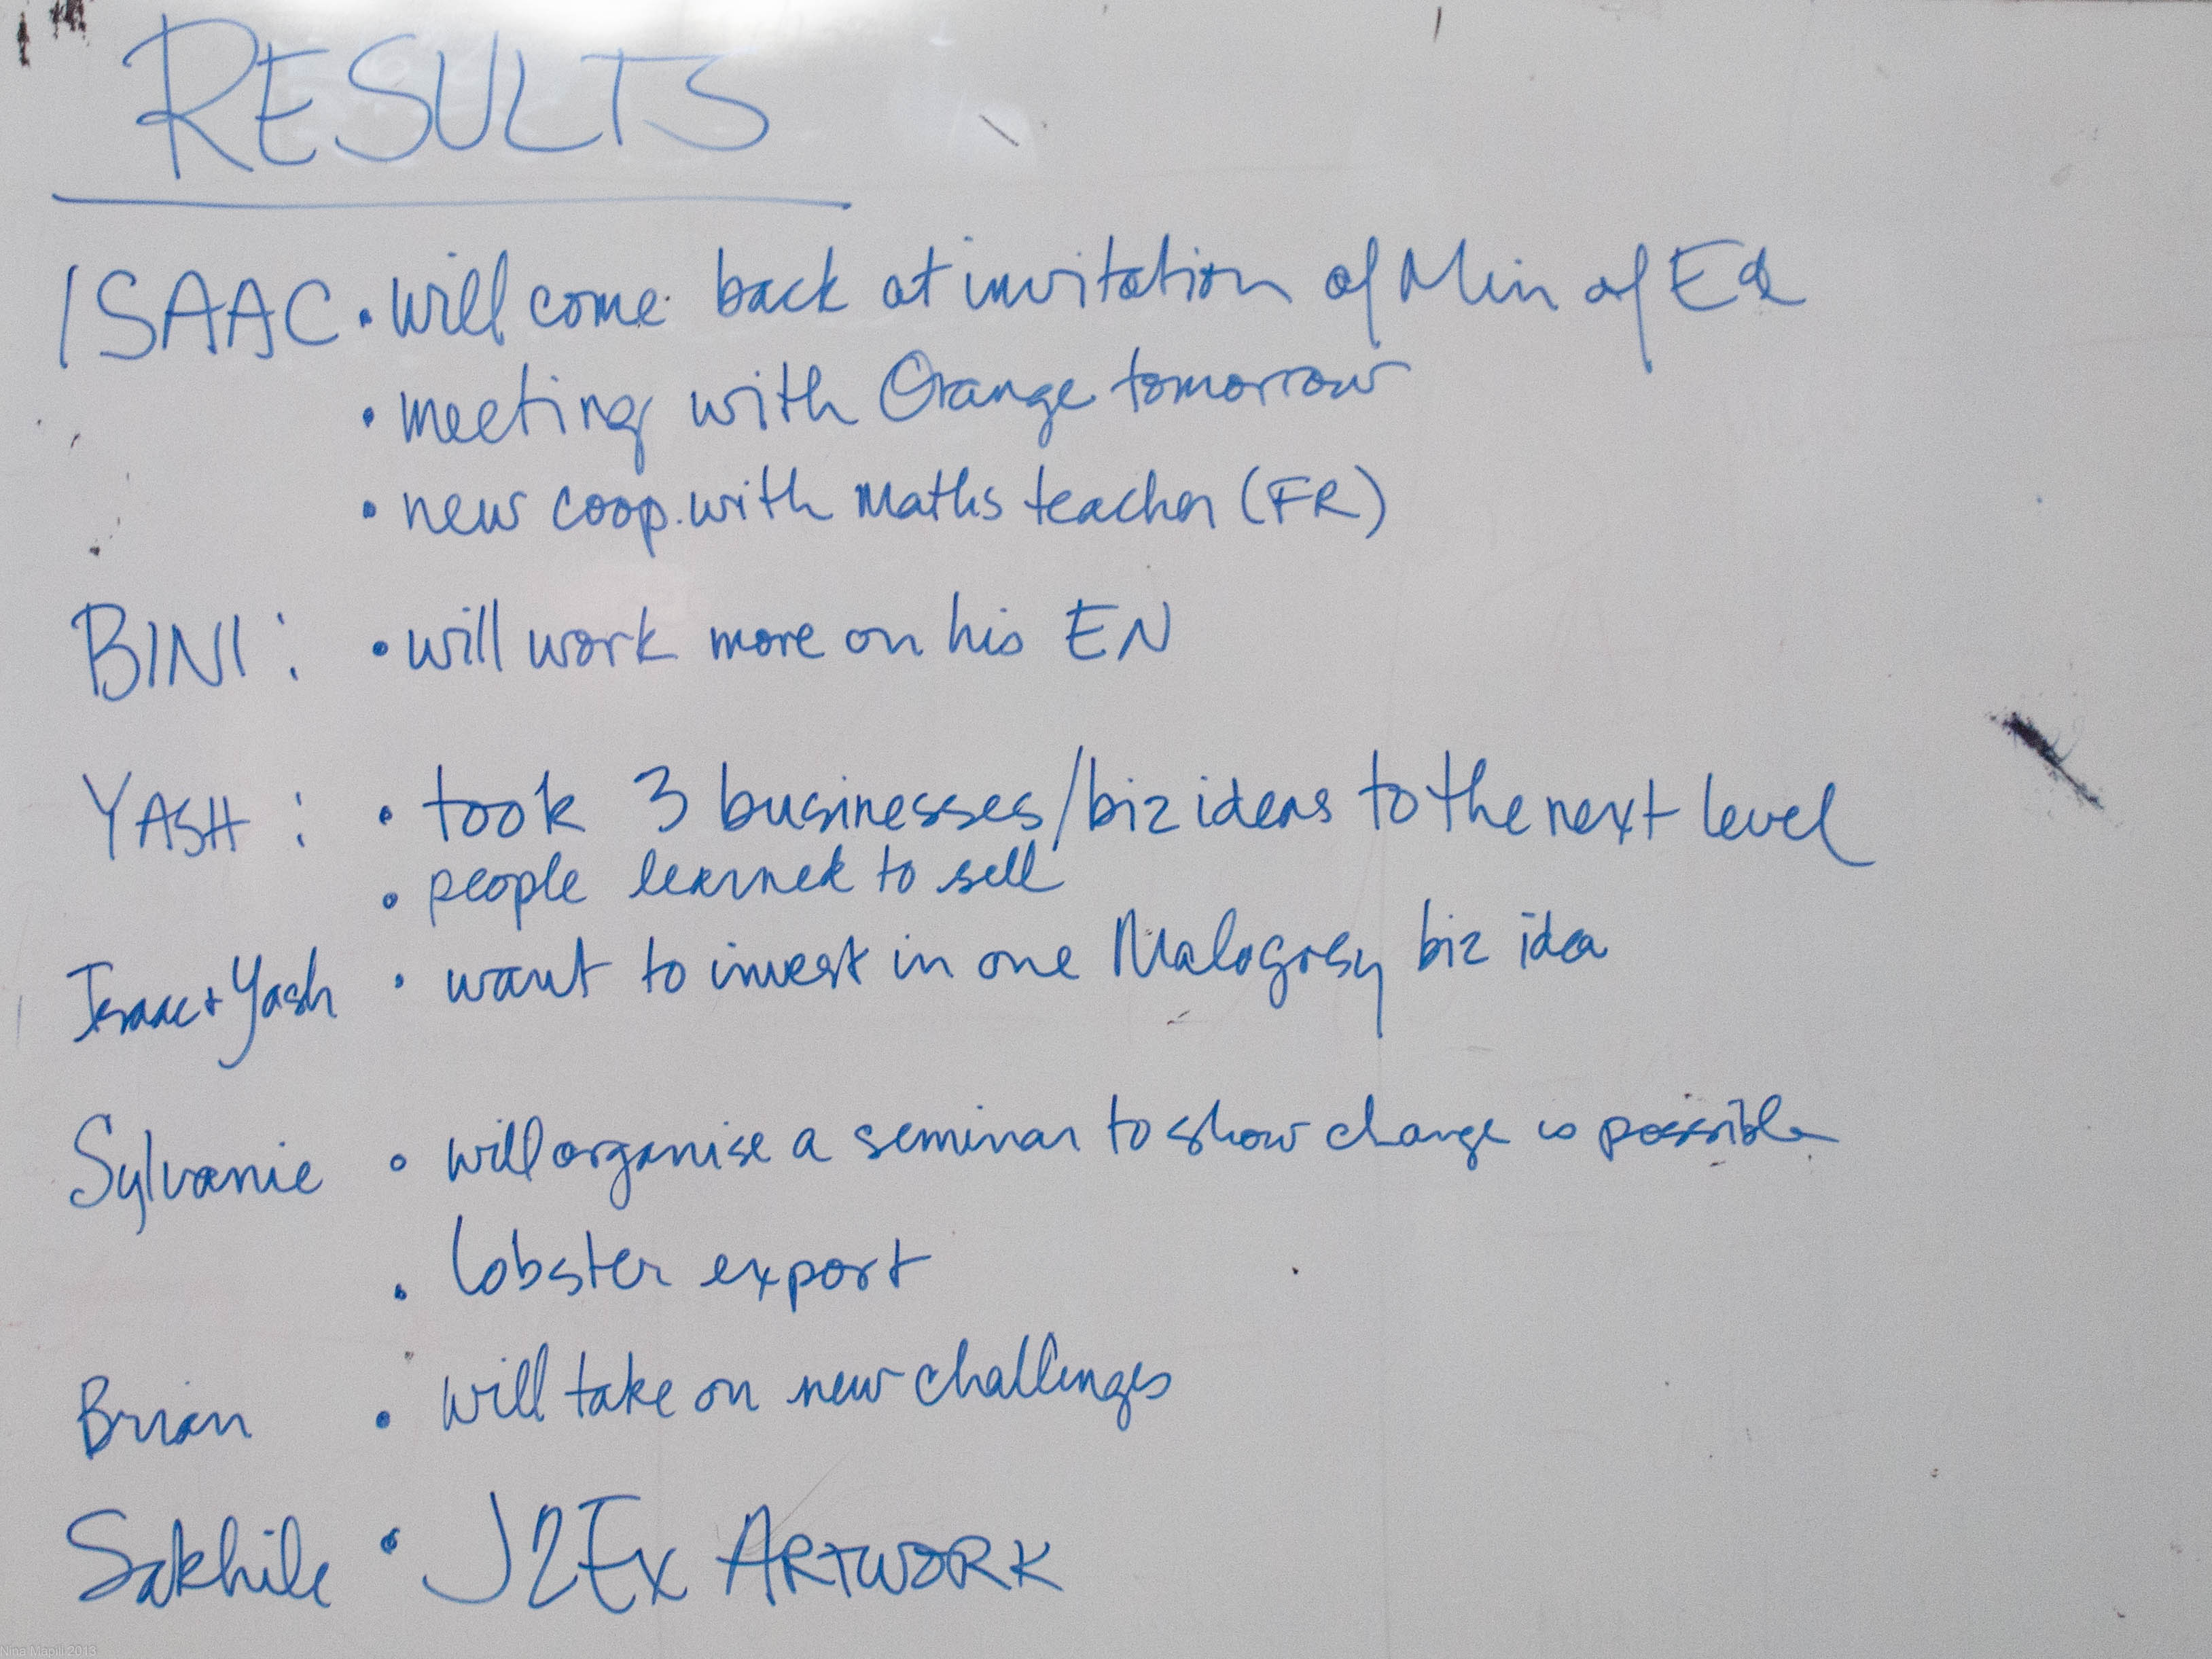 RESULTS
ISAAC • will come back at invitation of Min of Ed
• meeting with Orange tomorrow
• new coop. with Maths teacher (FR)
BINI : • will work more on his EN
YASH : • took 3 businesses/biz ideas to the next level
• people learned to sell
Isaac + Yash • want to invest in one Malagasy biz idea
Sylvanie • will organise a seminar to show change is possible
• lobster export
Brian • will take on new challenges
Sakhile • J2Ex ARTWORK
Nina Mapili 2013